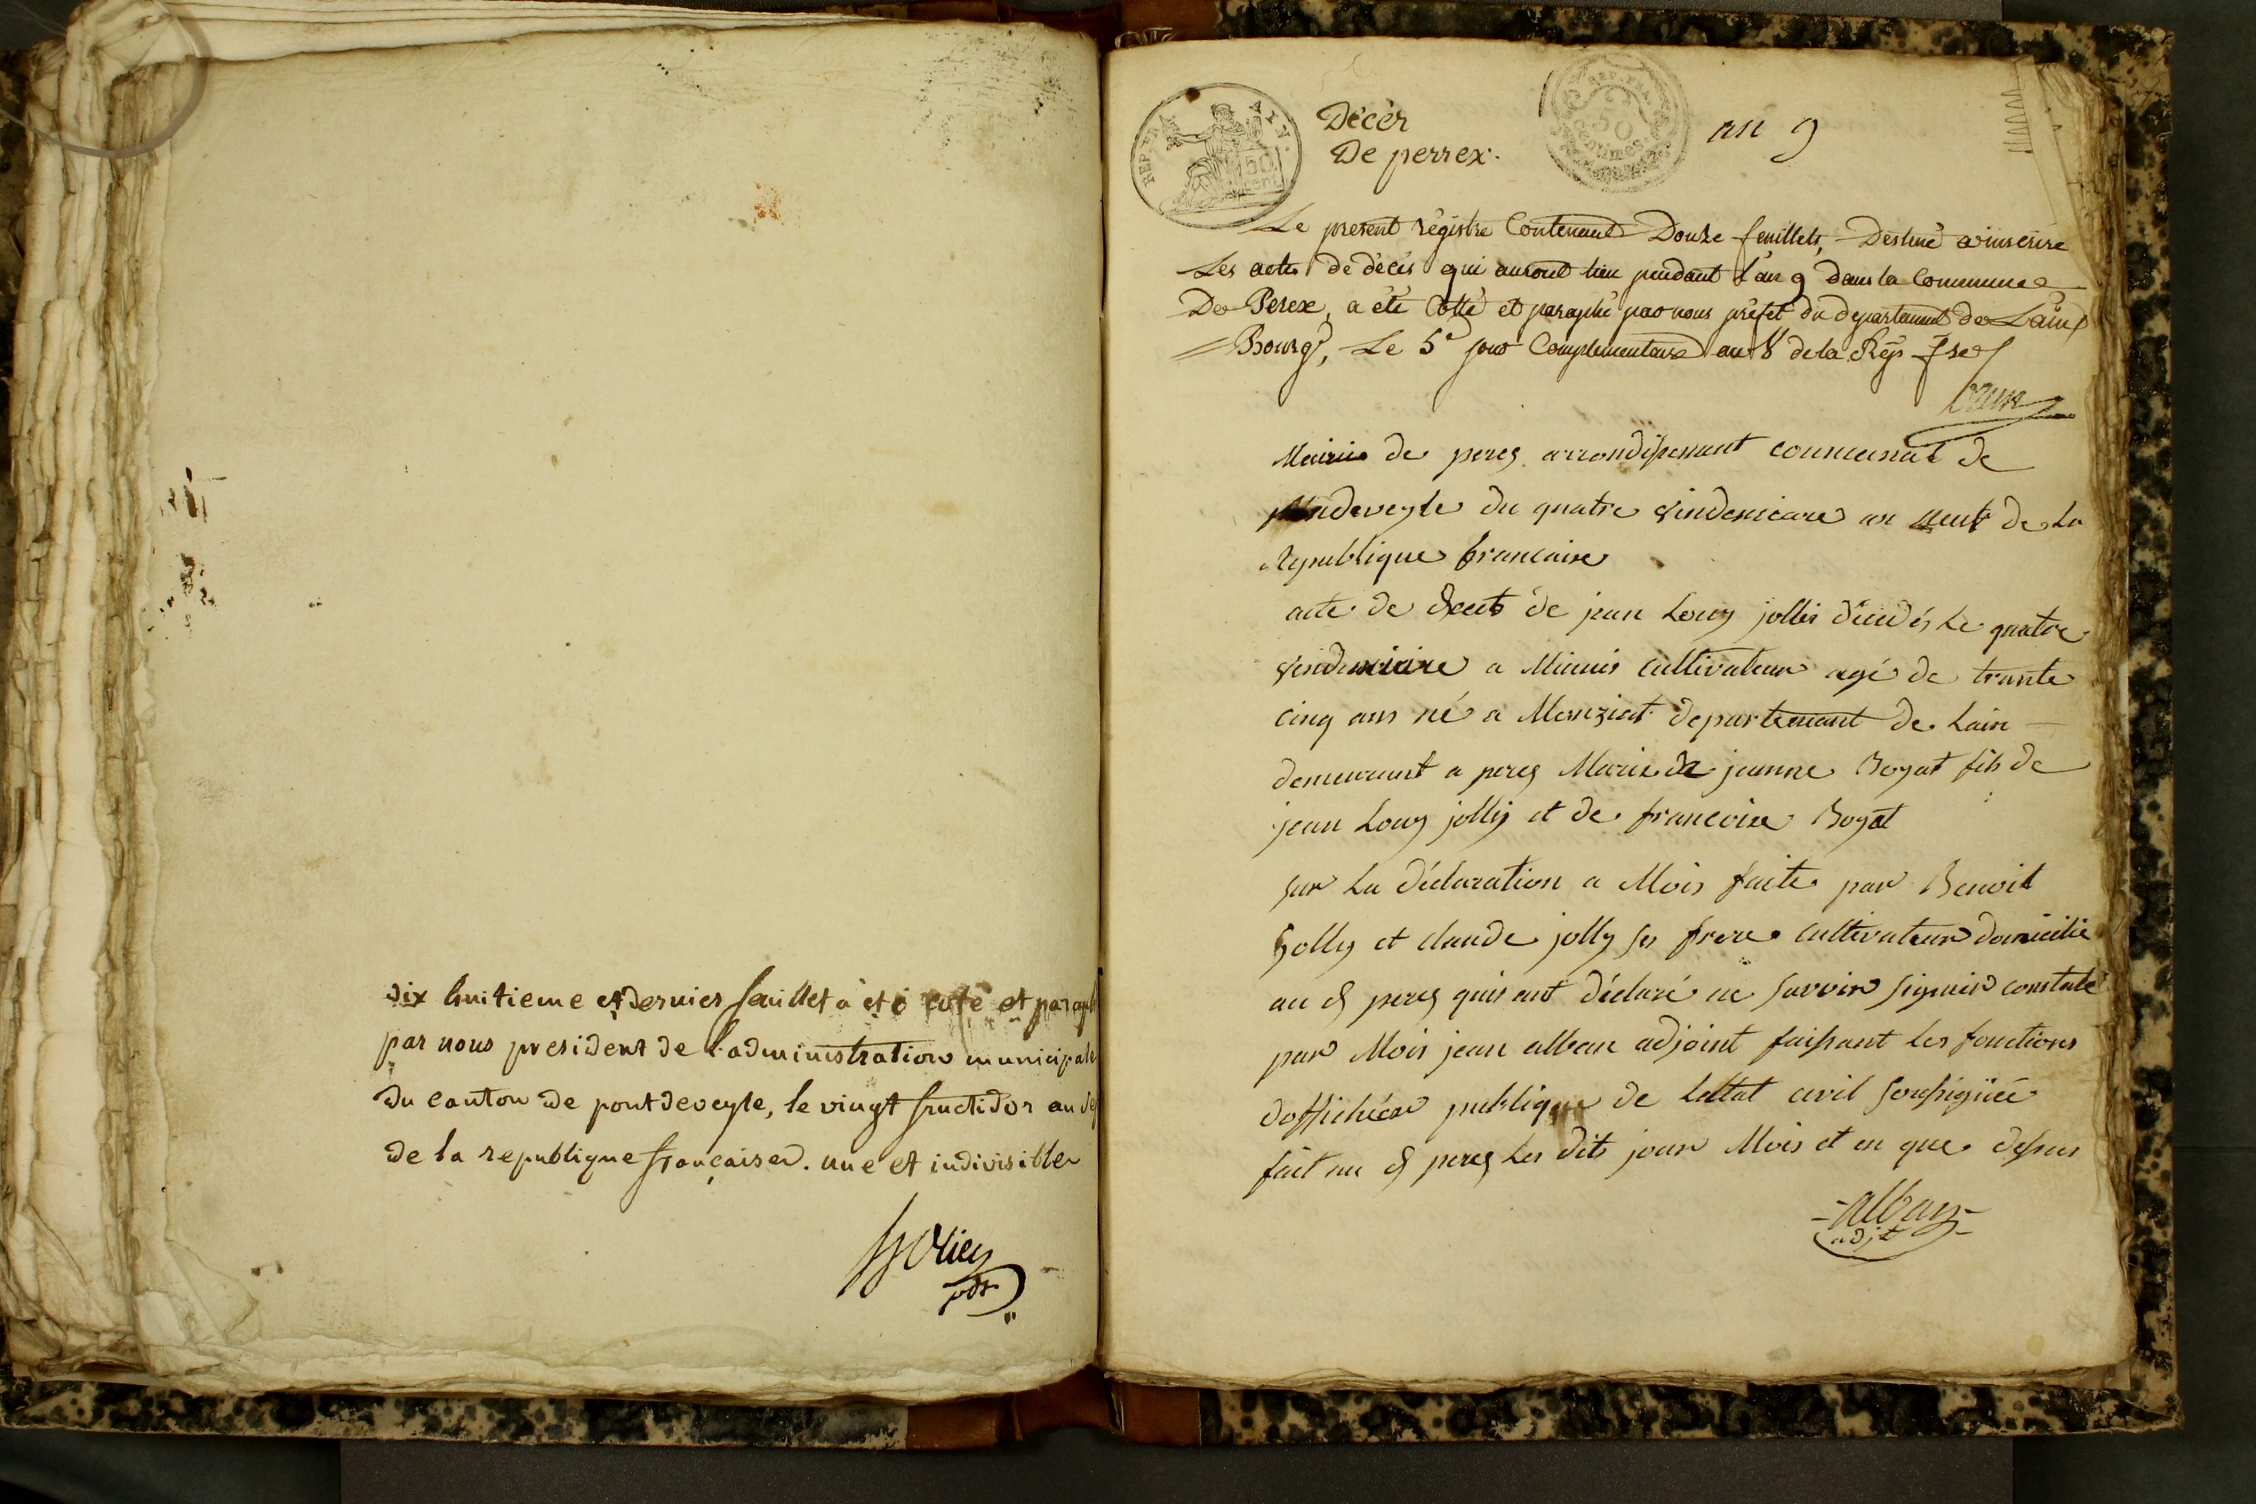 dix huitieme et dernier feuillet a été coté et paraph
par nous president de l'administration municipale
du canton de pontdeveyle, le vingt fructidor an sep
de la republique françaises. une et indivisible
pdt
REP. FRA.
50
cent
Décès
De perrex.
REP. FRA.
50
centimes
an 9
Le present régistre Contenant Douze feuillets, Destiné a inscrire
Les actes de décès qui auront lieu pendant l'an 9 dans la Commune
De Perex, a été Cotté et paraphé par nous préfet du departement de L'ain
Bourg, Le 5e jour Complementaire an 8 de la Rép. fse
Mairie de perey arrondissemant communal de
pondeveyle du quatre vindemiare an neuf de La
republique francaise
acte de decets de jean Louy jollis décédés Le quatre
vindemiaire a Minuis cultivateur agé de trante
cinq ans né a Manziat departemant de Lain
demeurant a perey Marie de jeanne Boyat fils de
jean Louy jolliy et de francoise Boyat
sur La déclaration a Mois faite par Benoit
Jolly et claude jolly ses frere cultivateur domicilié
au d perey quis ont déclaré ne savoir signier constaté
par Mois jean alban adjoint faissant Les fonctions
doffichier publique de Lettat civil soussigniéé
fait au d perey Les dits jour Mois et en que dessus
alban
adjt